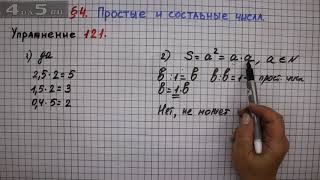 4 . ru
§4. Простые и составные числа.
Упражнение 121.
1) да
2,5·2=5
1,5·2=3
0,4·5=2
2) S=a²=a·a, a∈N
b:1=b b:b=1
b=1·b
Нет, не может